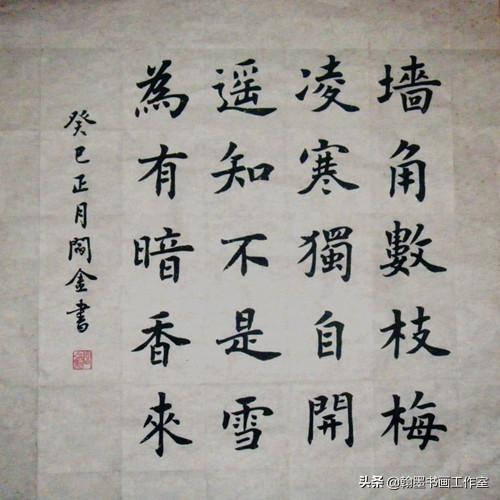 墙角數枝梅
凌寒獨自開
遥知不是雪
為有暗香來
癸巳正月閻金書
头条 @翰墨书画工作室